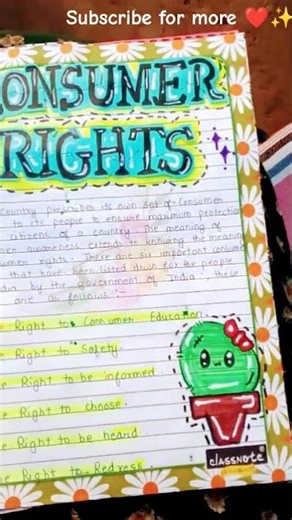 Subscribe for more ❤️✨
CONSUMER
RIGHTS
Country prescribes its own set of Consumer
to its people to ensure maximum protection
citizens of a country. The meaning of
awareness extends to knowing the meaning
rights. There are six important
that have been listed down for the people
by the government of India, these
are as follows :-
Right to Consumer Education.
Right to Safety
Right to be informed.
Right to choose.
Right to be heard
Right to Redress.
classnote